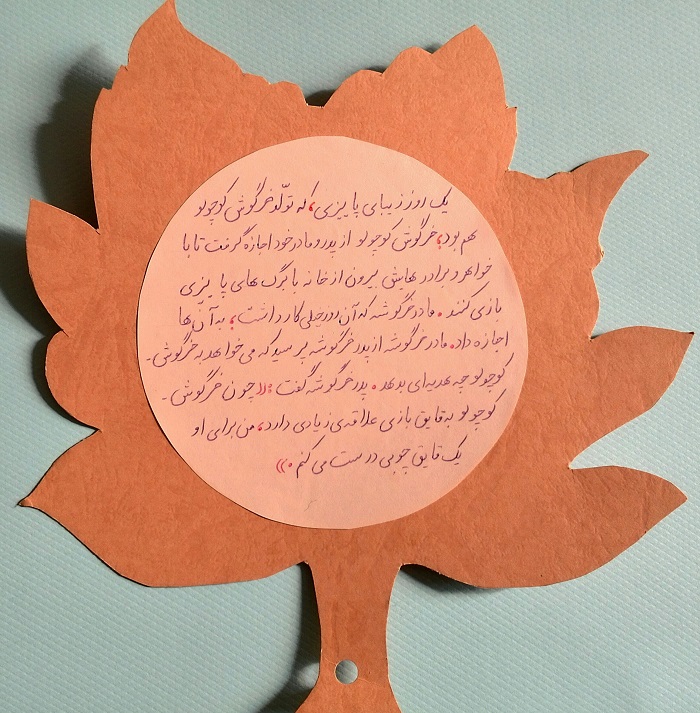 یک روز زیبای پاییزی، که تولّد خرگوش کوچولو
هم بود، خرگوش کوچولو از پدر و مادر خود اجازه گرفت تا با
خواهر و برادر هایش بیرون از خانه با برگ های پاییزی
بازی کنند. مادر خرگوشه که آن روز خیلی کار داشت، به آن ها
اجازه داد. مادر خرگوشه از پدر خرگوشه پرسید که می خواهد به خرگوش-
کوچولو چه هدیه ای بدهد. پدر خرگوشه گفت: «چون خرگوش-
کوچولو به قایق بازی علاقه ی زیادی دارد، من برای او
یک قایق چوبی درست می کنم.»